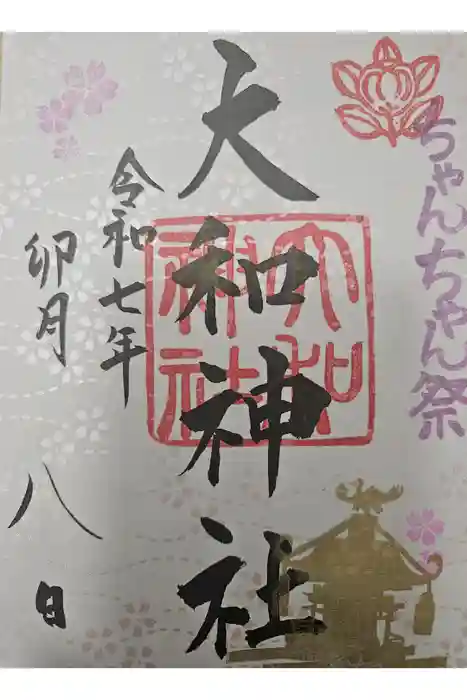 ちゃんちゃん祭
大和神社
大和神社
令和七年
卯月
八日